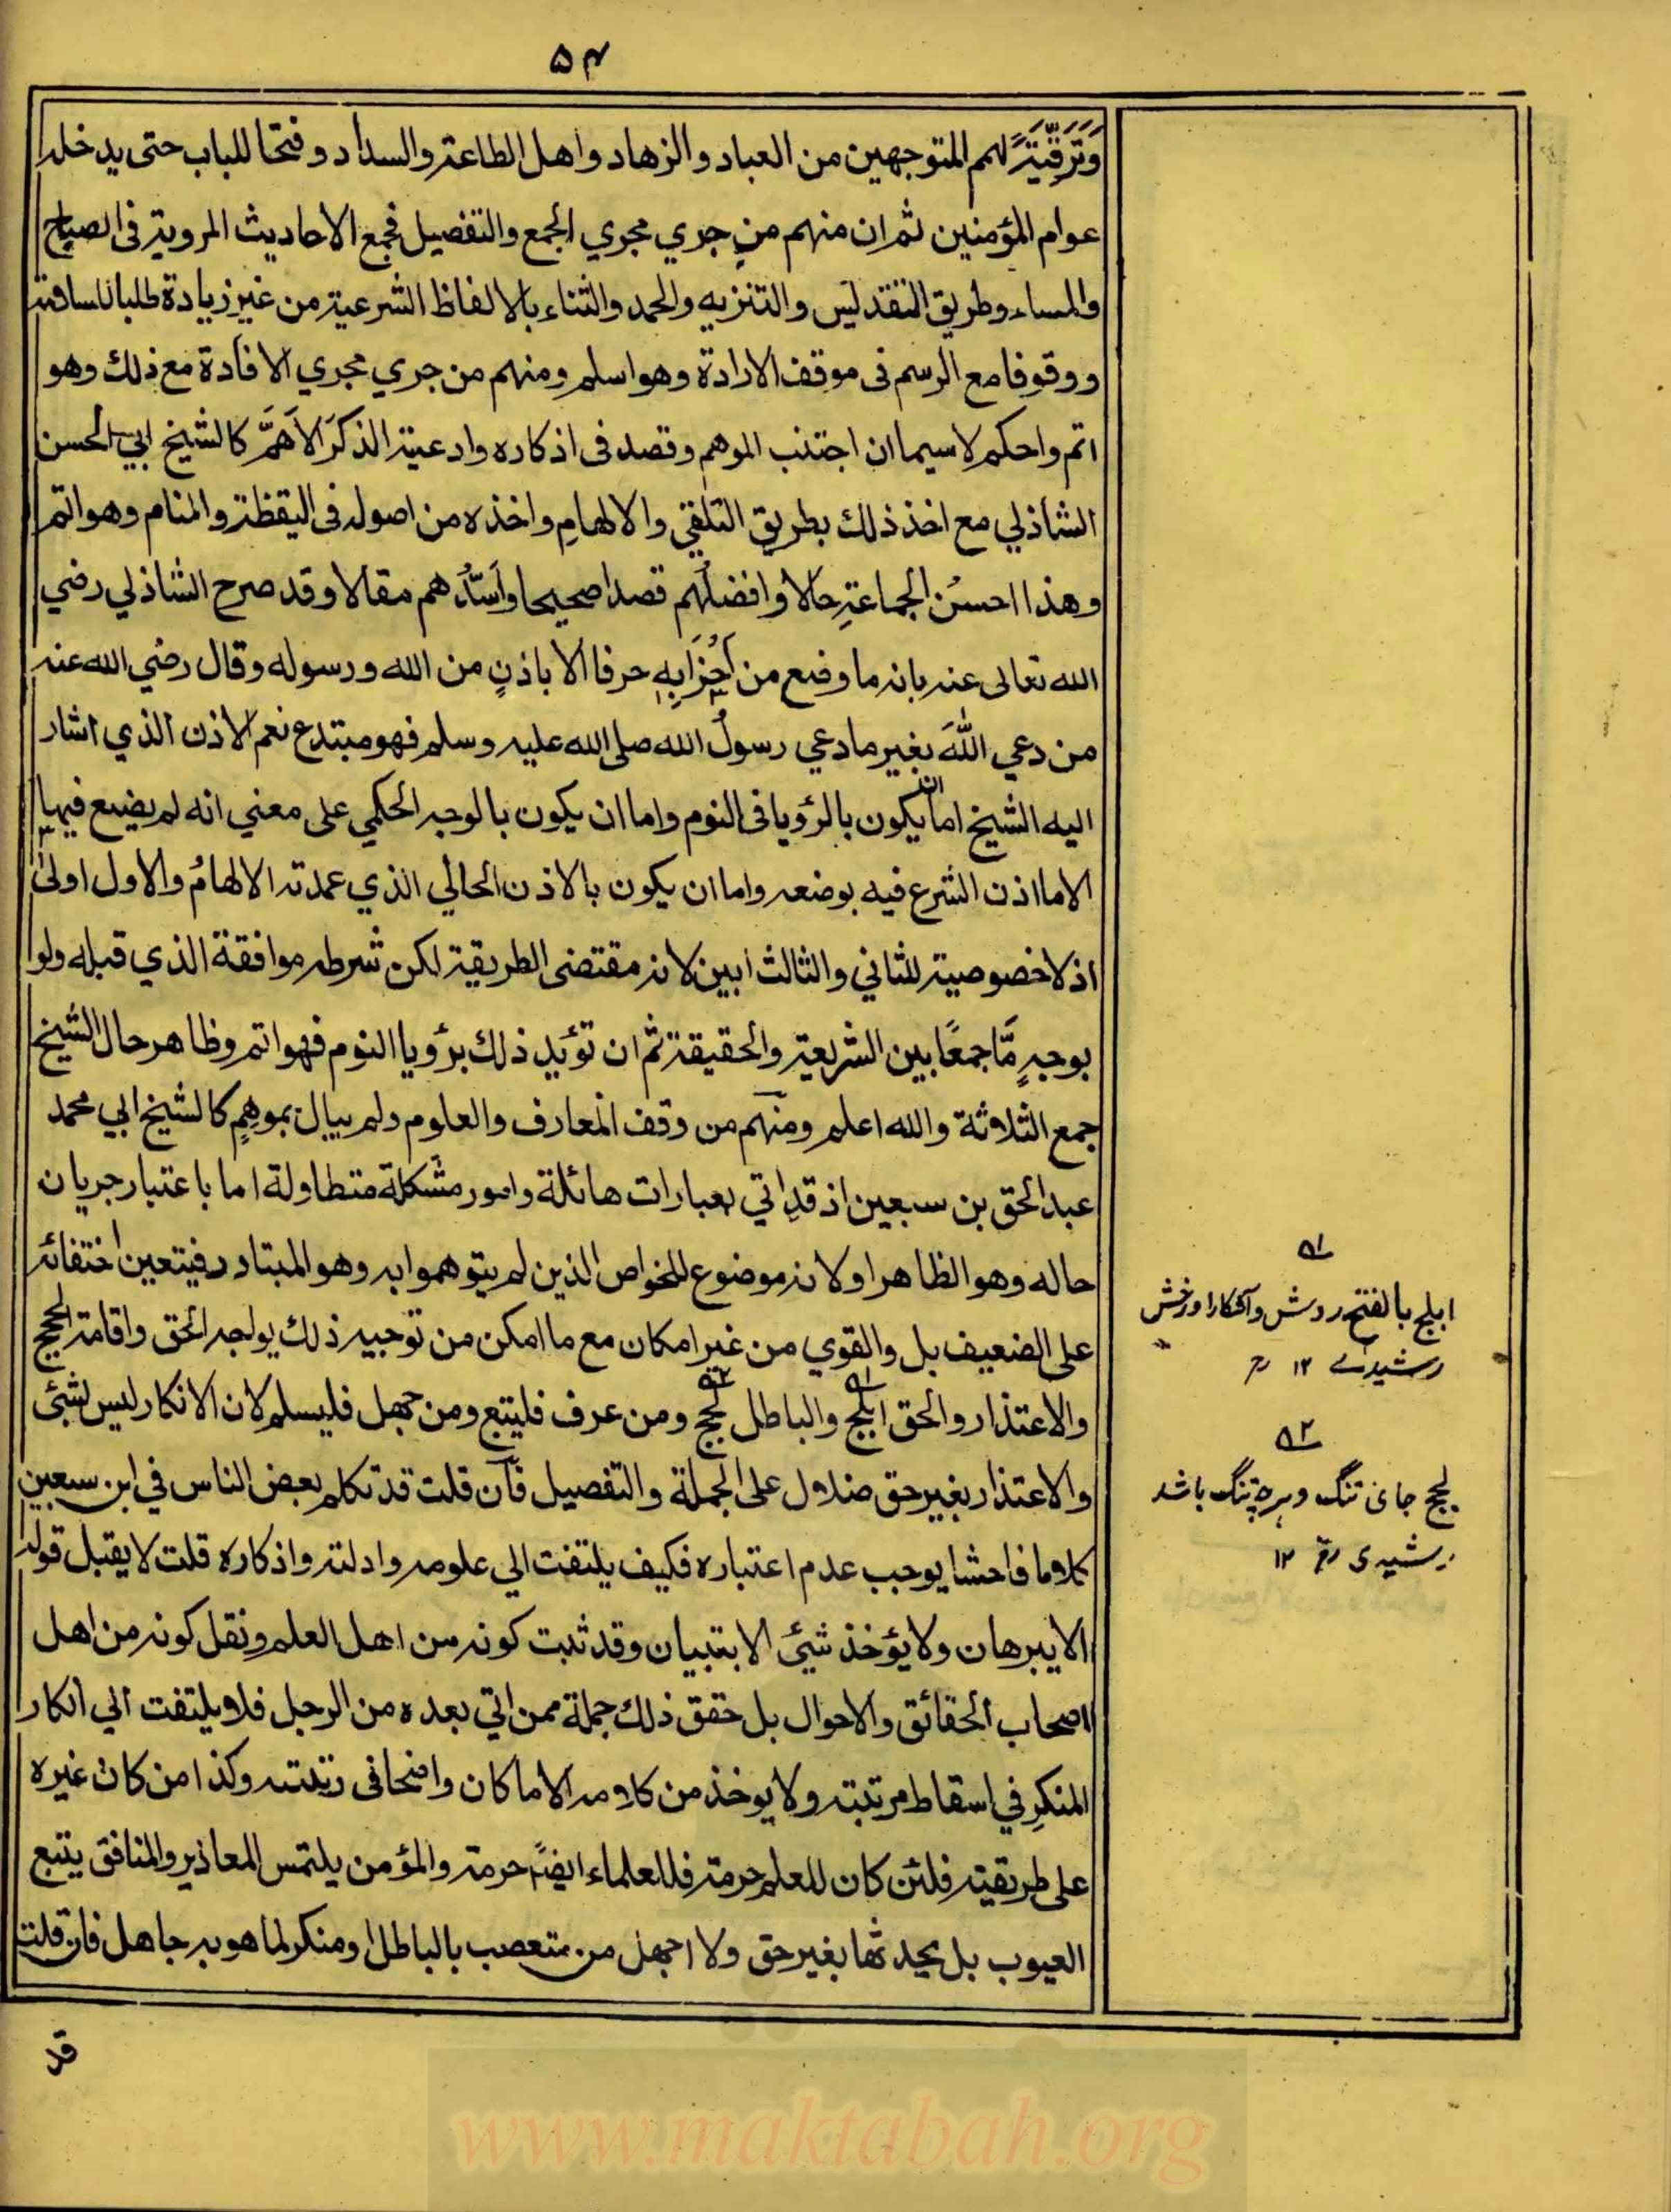 ۵۴
وَتَرَقِّيَةً لهمم المتوجهين من العباد والزهاد واهل الطاعة والسداد وفتحا للباب حتى يدخله
عوام المؤمنين ثم ان منهم من جري مجري الجمع والتفصيل فجمع الاحاديث المروية فى الصباح
والمساء وطريق التقديس والتنزيه والحمد والثناء بالالفاظ الشرعية من غير زيادة طلبا للسلامة
ووقوفا مع الرسم فى موقف الارادة وهو اسلم ومنهم من جري مجري الافادة مع ذلك وهو
اتم واحكم لاسيما ان اجتنب الموهم وقصد فى اذكاره وادعية الذكر الاهَمَّ كالشيخ ابي الحسن
الشاذلي مع اخذ ذلك بطريق التلقي والالهامِ واخذه من اصوله فى اليقظة والمنام وهو اتم
وهذا احسنُ الجماعةِ حالا وافضلُهم قصدا صحيحا واَسَدُّهم مقالا وقد صرح الشاذلي رضي
الله تعالى عنه بانه ما وضع من اَحْزَابِهِ حرفا الا باذنٍ من الله ورسوله وقال رضي الله عنه
من دعي اللّٰهَ بغير ما دعي رسولُ الله صلى الله عليه وسلم فهو مبتدع نعم الاذن الذي اشار
اليه الشيخ اما ان يكون بالرؤيا فى النوم واما ان يكون بالوجه الحكمي على معني انه لم يضع فيها
الا ما اذن الشرع فيه بوضعه واما ان يكون بالاذن الحالي الذي عمدته الالهامُ والاول اولى
اذ لا خصوصية للثاني والثالث ابين لانه مقتضى الطريقة لكن شرطه موافقة الذي قبله ولو
بوجهٍ مَّا جمعًا بين الشريعة والحقيقة ثم ان تؤيد ذلك برؤيا النوم فهو اتم وظاهر حال الشيخ
جمع الثلاثة والله اعلم ومنهم من وقف المعارف والعلوم ولم يبال بموهِمٍ كالشيخ ابي محمد
عبد الحق بن سبعين اذ قد اتي بعبارات هائلة وامور مشكلة متطاولة اما باعتبار جريان
حاله وهو الظاهر او لانه موضوع للخواص الذين لم يتوهموا به وهو المبتادر فيتعين اختفائه
على الضعيف بل والقوي من غير امكان مع ما امكن من توجيه ذلك بواجه الحق واقامة الحجج
والاعتذار والحق ابلج والباطل لجج ومن عرف فليتبع ومن جهل فليسلم لان الانكار ليس لشئى
والاعتذار بغير حق ضلال على الجملة والتفصيل فان قلت قد تكلم بعض الناس في ابن سبعين
كلاما فاحشا يوجب عدم اعتباره فكيف يلتفت الي علومه وادلته واذكاره قلت لا يقبل قوله
الا ببرهان ولا يؤخذ شيئ الا بتبيان وقد ثبت كونه من اهل العلم ونقل كونه من اهل
اصحاب الحقائق والاحوال بل حقق ذلك جملة ممن اتي بعده من الرجل فلا يلتفت الي انكار
المنكرِ في اسقاط مرتبته ولا يوخذ من كلامه الا ما كان واضحا فى رتبته وكذا من كان غيره
على طريقته فلئن كان للعلم حرمة فللعلماء ايضًا حرمة والمؤمن يلتمس المعاذير والمنافق يتبع
العيوب بل يحدثها بغير حق ولا اجهل من متعصب بالباطل ومنكر لما هو به جاهل فان قلت
قد
۱
ابلج بالفتح روشن وآشكارا ورخش
رشيدے ۱۲ رح
۲
لجج جاى تنگ وهرچه تنگ باشد
رشيدى رح ۱۲
www.maktabah.org